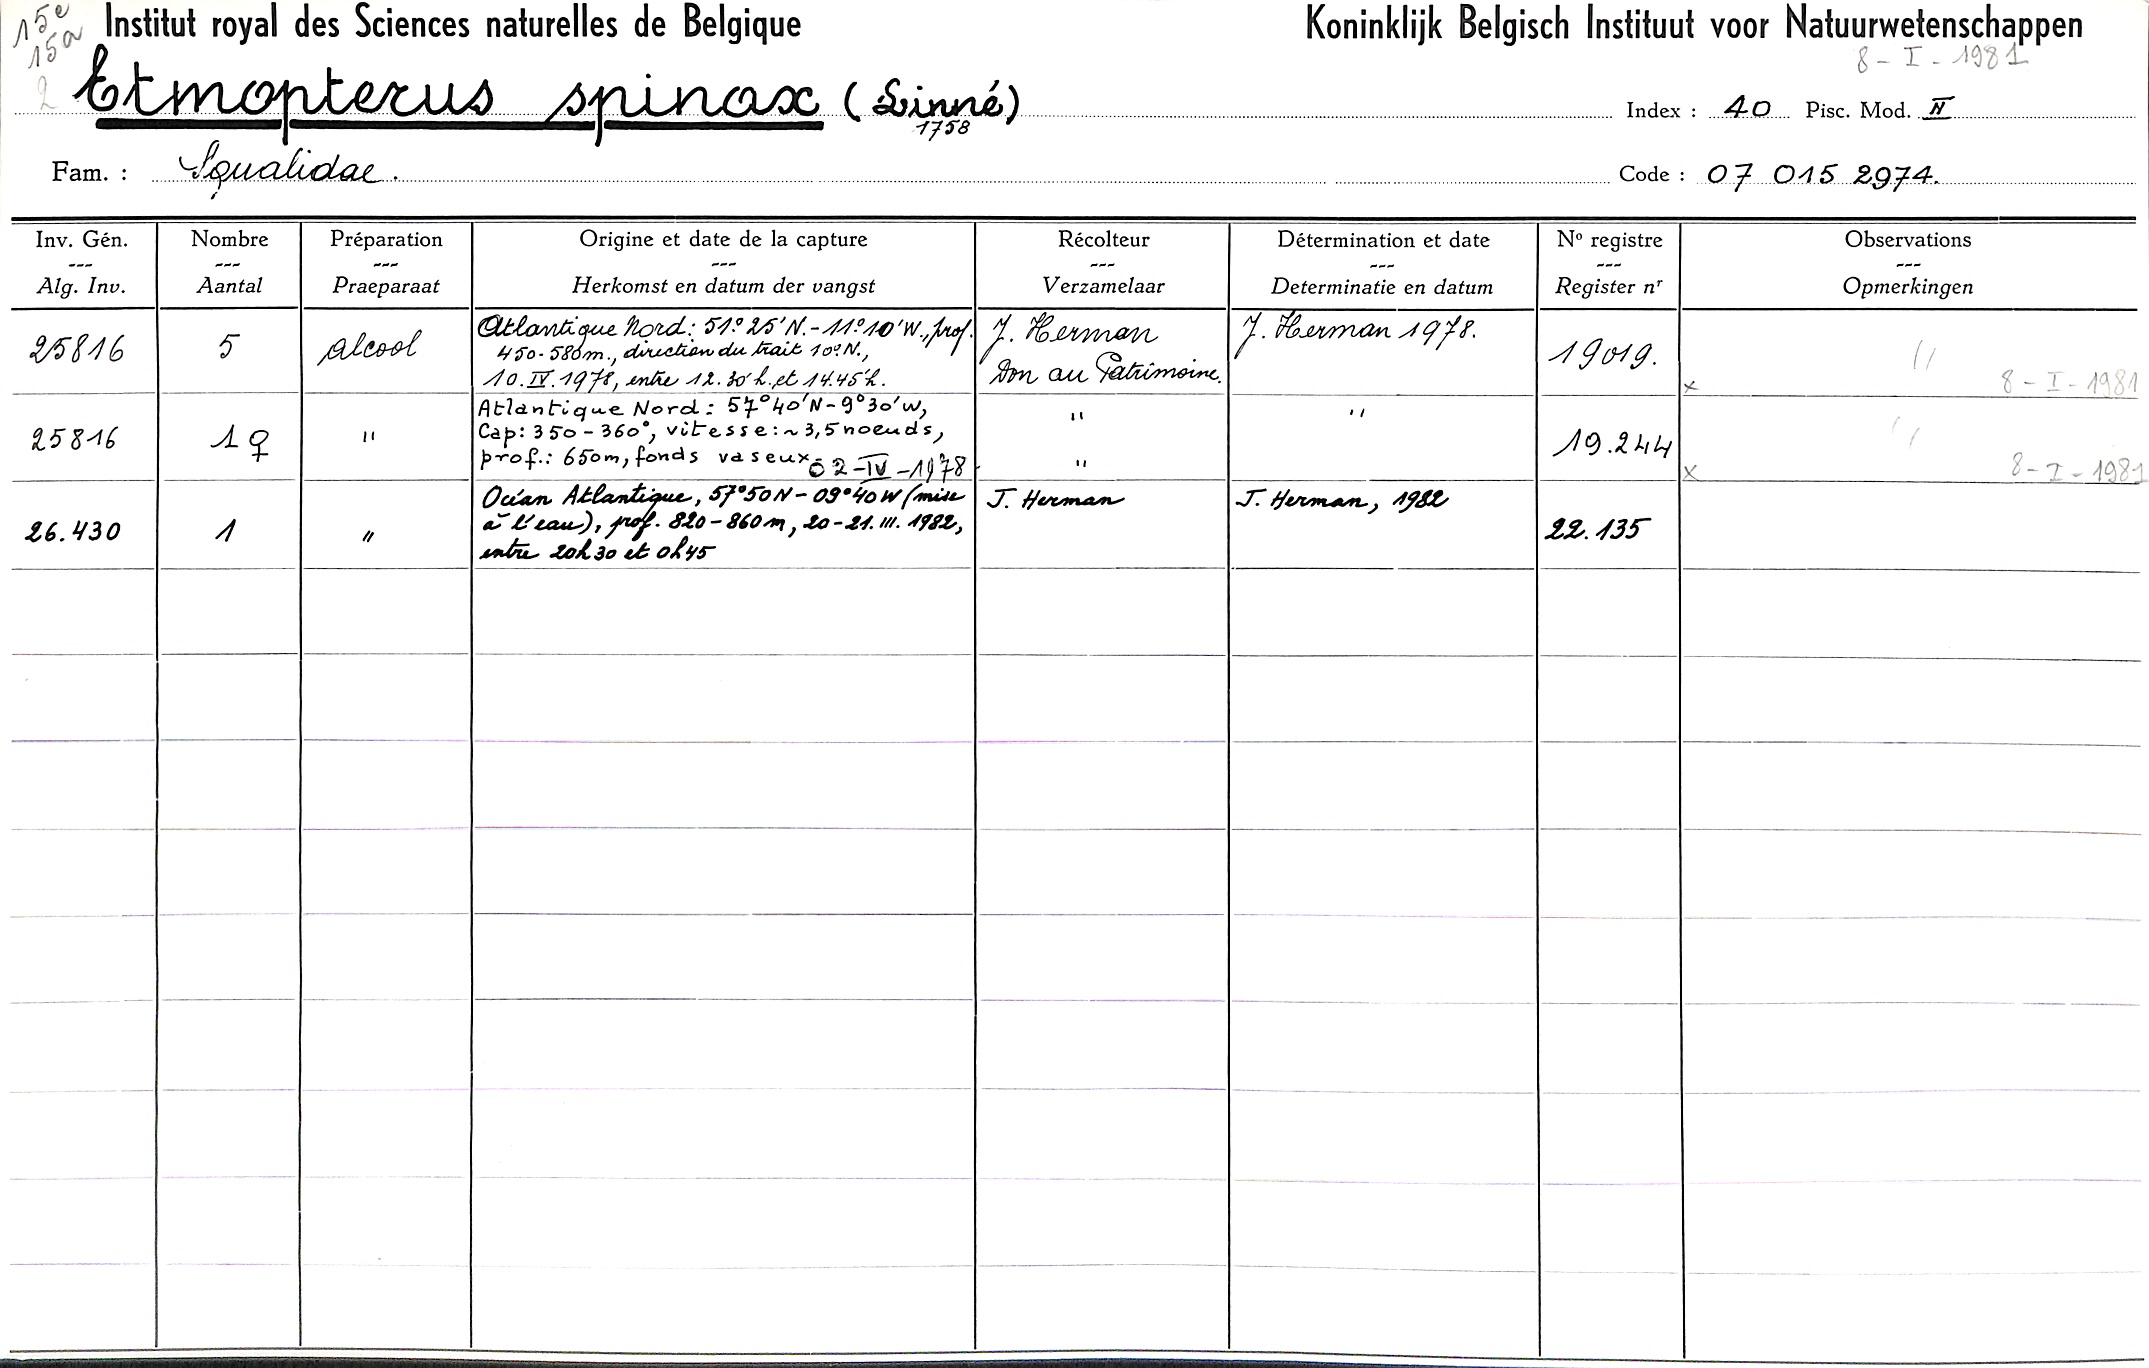 15e
15a
2
Institut royal des Sciences naturelles de Belgique
Koninklijk Belgisch Instituut voor Natuurwetenschappen
8 - I - 1981
Etmopterus spinax (Linné)
1758
Index : 40 Pisc. Mod. II
Fam. : Squalidae.
Code : 07 015 2974.
Inv. Gén.
---
Alg. Inv.
Nombre
---
Aantal
Préparation
---
Praeparaat
Origine et date de la capture
---
Herkomst en datum der vangst
Récolteur
---
Verzamelaar
Détermination et date
---
Determinatie en datum
No registre
---
Register nr
Observations
---
Opmerkingen
25816
5
alcool
Atlantique Nord: 51° 25' N. - 11° 10' W., prof.
450-580m., direction du trait 10° N.,
10. IV. 1978, entre 12.30'h. et 14.45'h.
J. Herman
Don au Patrimoine.
J. Herman 1978.
19019.
"
x 8 - I - 1981
25816
1 ♀
"
Atlantique Nord: 57°40'N - 9°30'W,
Cap: 350 - 360°, vitesse: ~ 3,5 noeuds,
prof.: 650m, fonds vaseux - 02 - IV - 1978.
"
"
"
19.244
"
x 8 - I - 1981
26.430
1
"
Océan Atlantique, 57°50N - 09°40W (mise
à l'eau), prof. 820-860m, 20-21. III. 1982,
entre 20h30 et 0h45
J. Herman
J. Herman, 1982
22.135